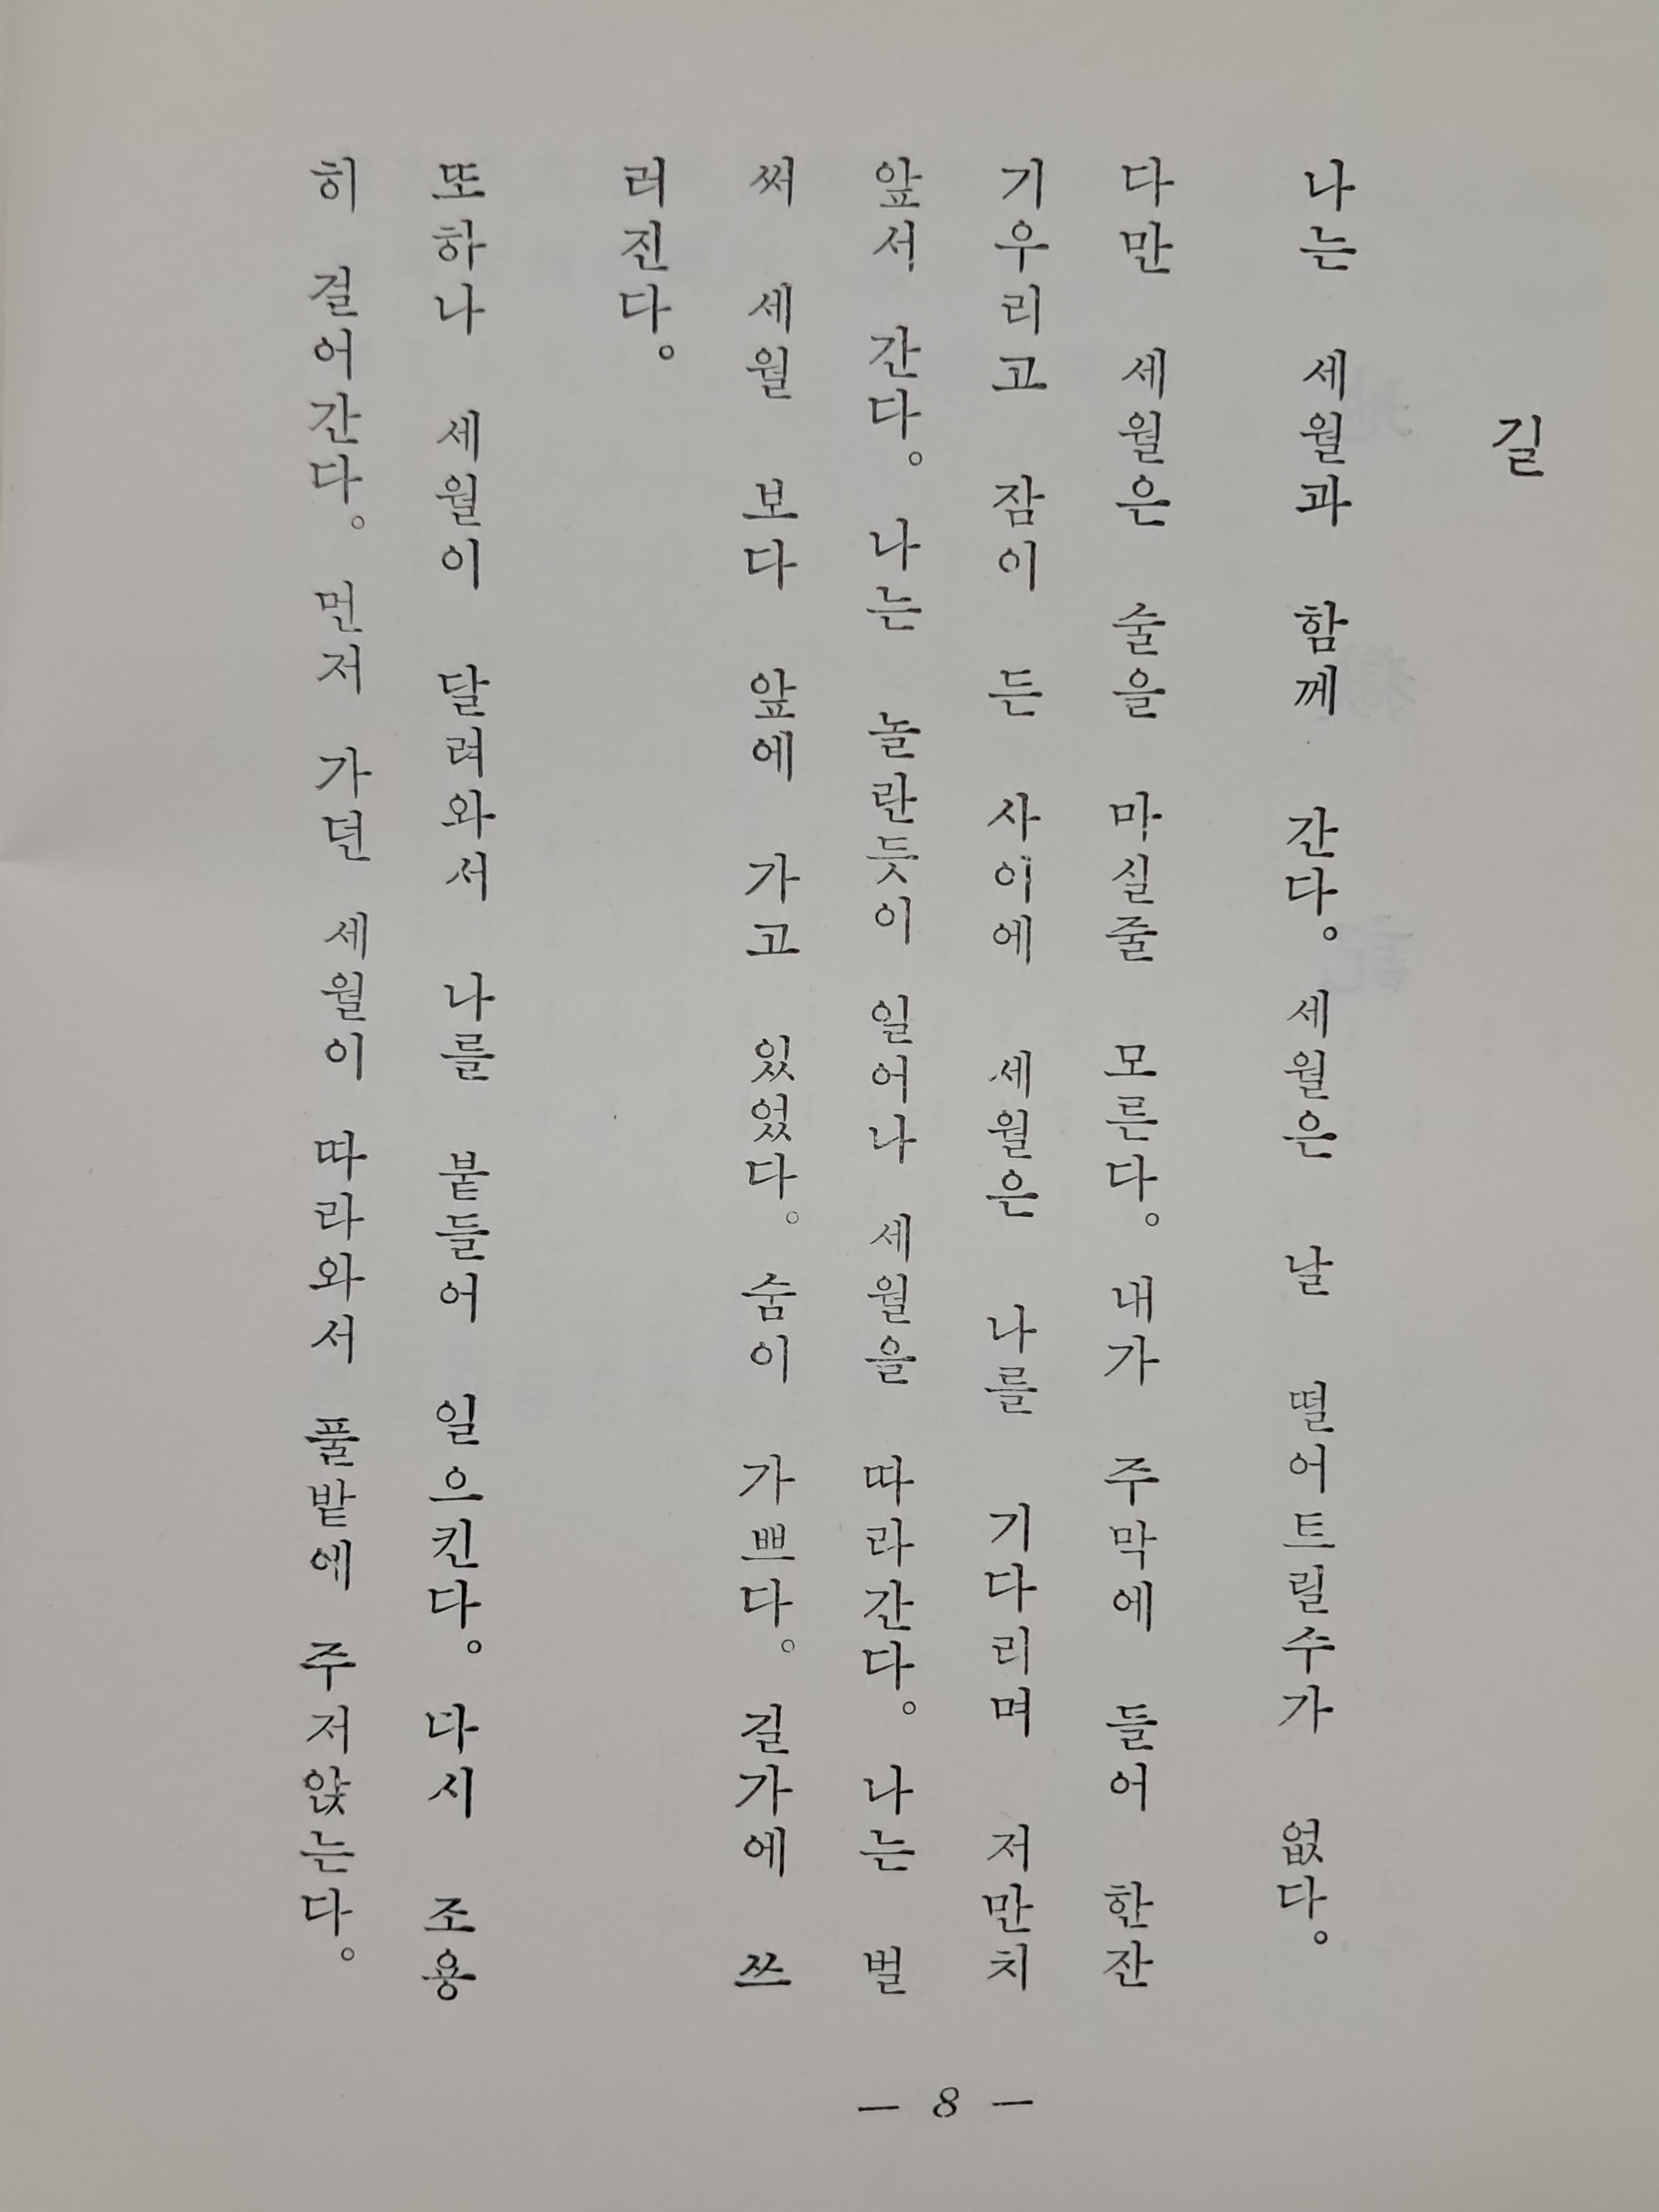 길
나는 세월과 함께 간다。 세월은 날 떨어트릴수가 없다。
다만 세월은 술을 마실줄 모른다。 내가 주막에 들어 한잔
기우리고 잠이 든 사이에 세월은 나를 기다리며 저만치
앞서 간다。 나는 놀란듯이 일어나 세월을 따라간다。 나는 벌
써 세월 보다 앞에 가고 있었다。 숨이 가쁘다。 길가에 쓰
러진다。
또하나 세월이 달려와서 나를 붙들어 일으킨다。 다시 조용
히 걸어간다。 먼저 가던 세월이 따라와서 풀밭에 주저앉는다。
— 8 —